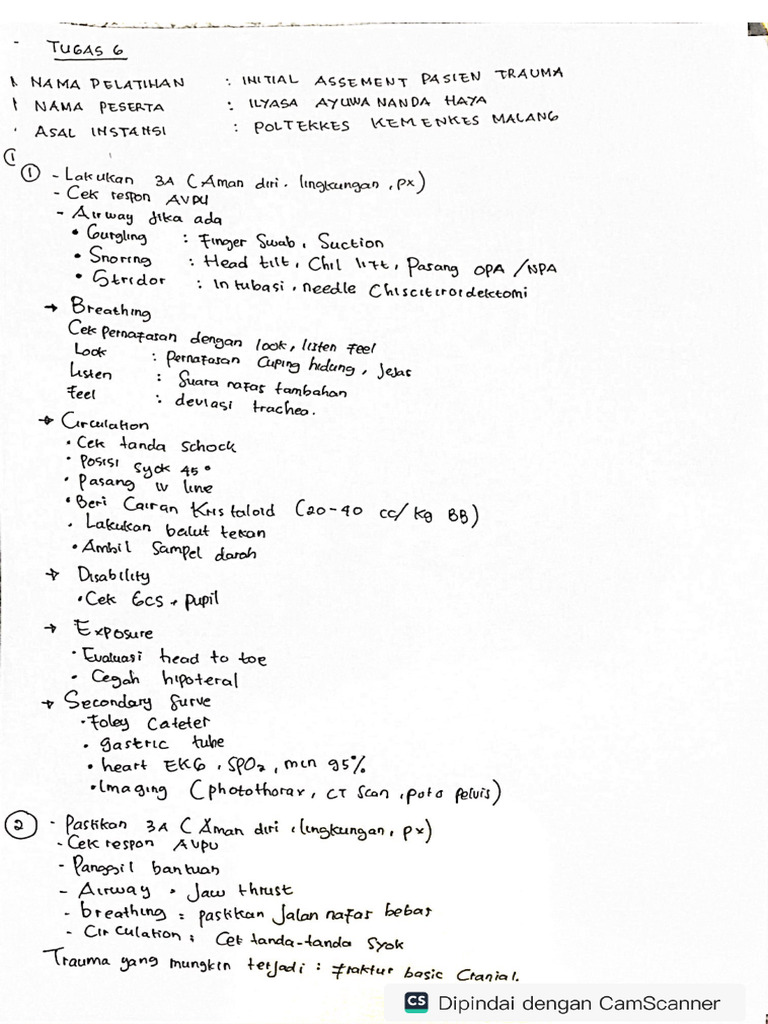 - TUGAS 6
NAMA PELATIHAN : INITIAL ASSEMENT PASIEN TRAUMA
NAMA PESERTA : ILYASA AYUWA NANDA HAYA
ASAL INSTANSI : POLTEKKES KEMENKES MALANG
① - Lakukan 3A (Aman diri. lingkungan, px)
- Cek respon AVPU
- Airway Jika ada
• Gurgling : Finger Swab, Suction
• Snoring : Head tilt, Chil lift, Pasang OPA /NPA
• Stridor : Intubasi, needle Chiscitiroidektomi
→ Breathing
Cek pernafasan dengan look, listen feel
Look : Pernafasan Cuping hidung, Jejas
Listen : Suara nafas tambahan
Feel : deviasi trachea.
→ Circulation
• Cek tanda schock
• Posisi syok 45°
• Pasang IV line
• Beri Cairan Kristaloid (20-40 cc/kg BB)
• Lakukan balut tekan
• Ambil Sampel darah
→ Disability
• Cek GCS + pupil
→ Exposure
• Evaluasi head to toe
• Cegah hipoteral
→ Secondary Surve
• Foley Cateter
• gastric tube
• heart EKG, SPO2, min 95%
• Imaging (photothorax, CT Scan, poto pelvis)
② - Pastikan 3A (Aman diri, lingkungan, px)
- Cek respon AVPU
- Panggil bantuan
- Airway • Jaw thrust
- breathing : pastikan Jalan nafas bebas
- Circulation : Cek tanda-tanda syok
Trauma yang mungkin terjadi : fraktur basic Cranial.
CS Dipindai dengan CamScanner